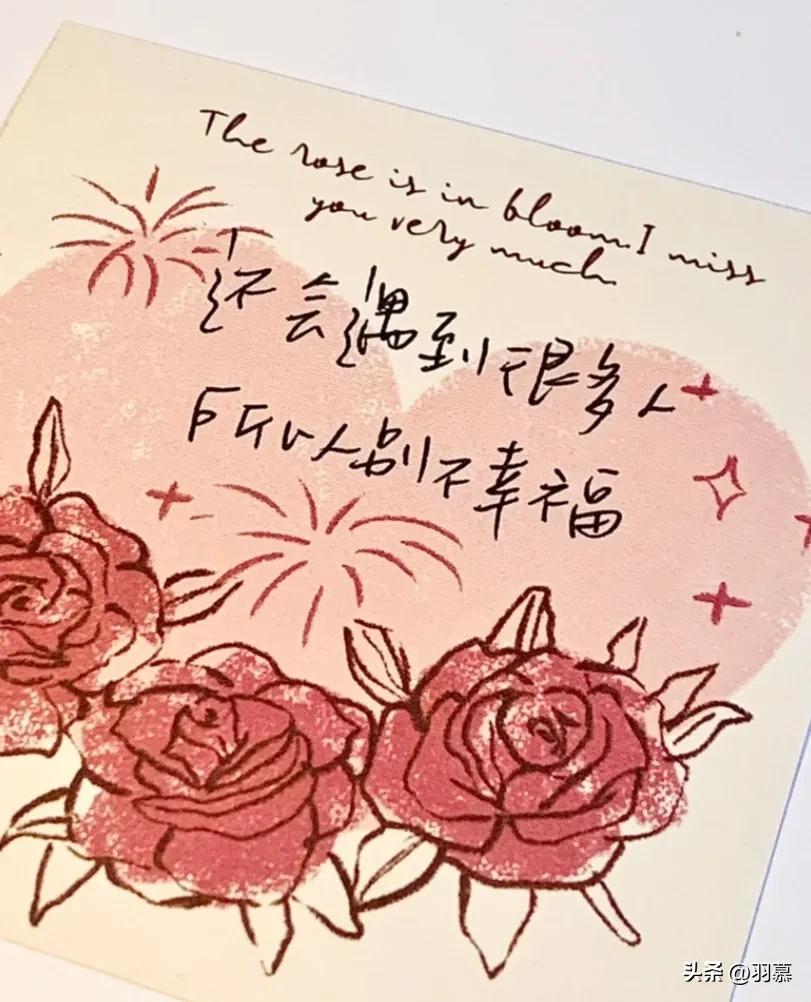 The rose is in bloom. I miss
you very much.
还会遇到很多人
所以别不幸福
头条 @羽慕